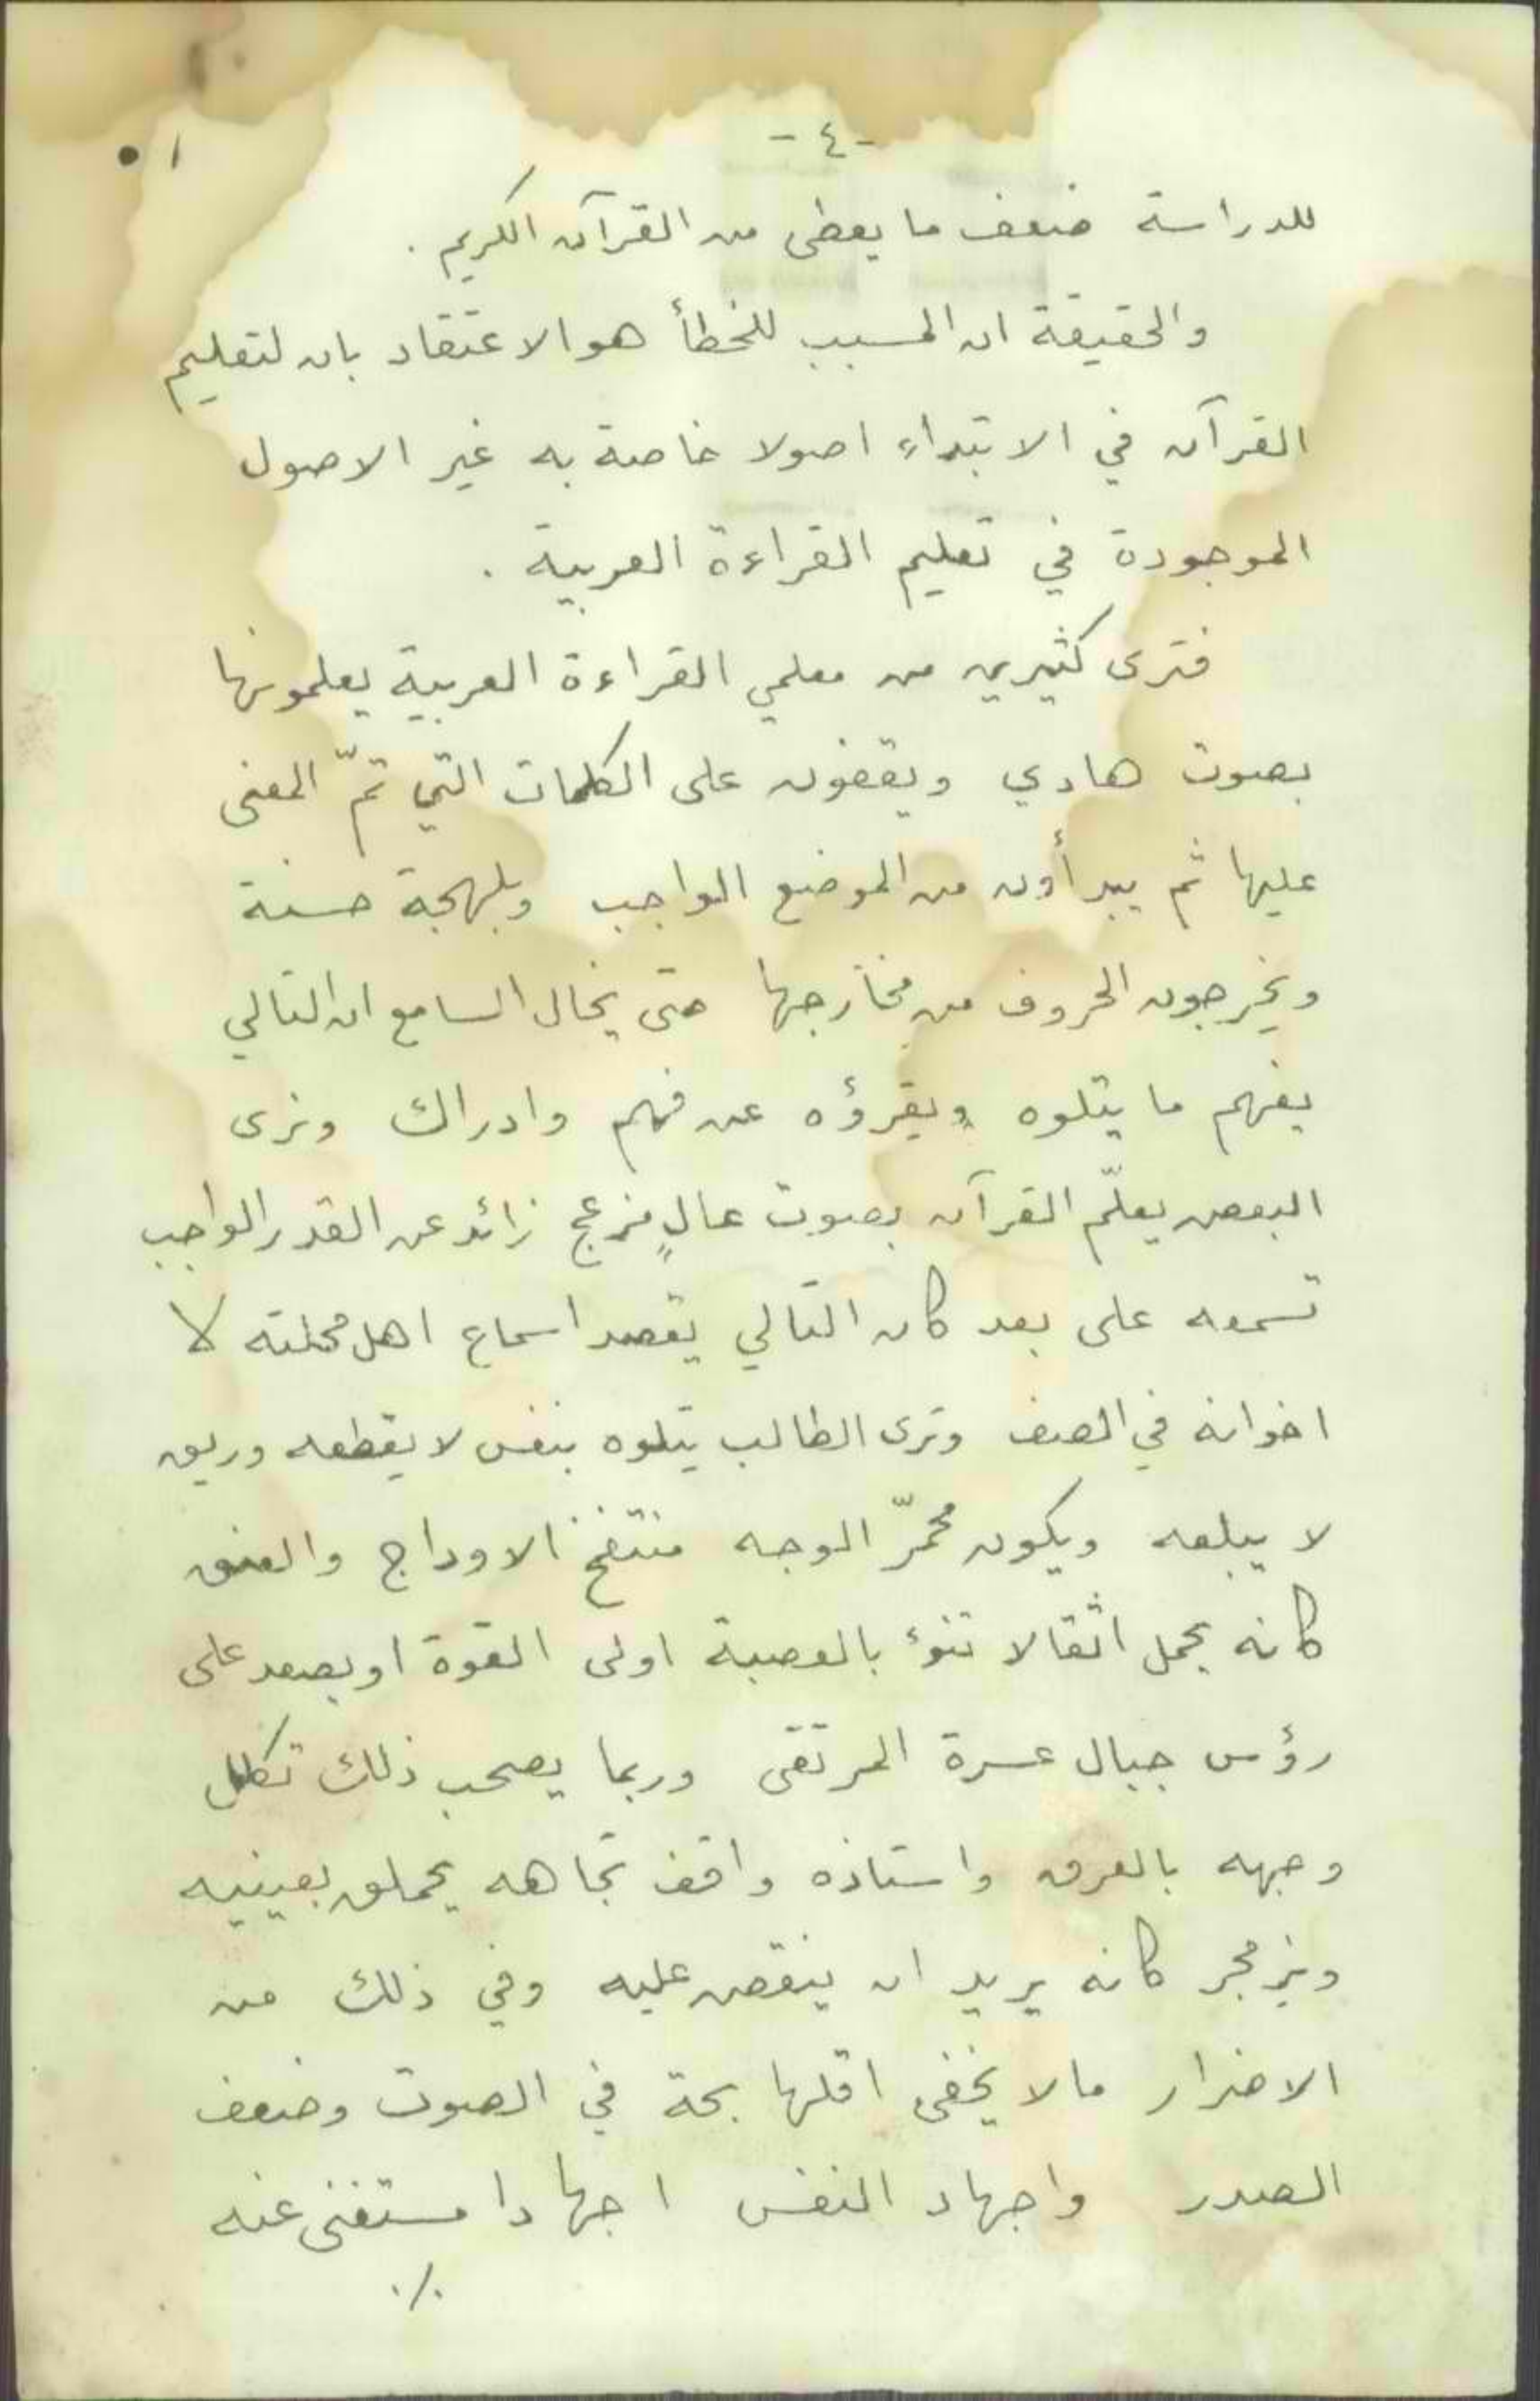 -٤-
١٠
للدراسة ضعف ما يعطى من القرآن الكريم .
والحقيقة ان المسبب للخطأ هو الاعتقاد بان لتعليم
القرآن في الابتداء اصولا خاصة به غير الاصول
الموجودة في تعليم القراءة العربية .
فترى كثيرين من معلمي القراءة العربية يعلمونها
بصوت هادي ويقفون على الكلمات التي تمّ المعنى
عليها ثم يبدأون من الموضع الواجب وبلهجة حسنة
ويخرجون الحروف من مخارجها حتى يخال السامع ان التالي
يفهم ما يتلوه ويقرؤه عن فهم وادراك ونرى
البعض يعلّم القرآن بصوت عالٍ مزعج زائد عن القدر الواجب
تسمعه على بعد كان التالي يقصد اسماع اهل محلته لا
اخوانه في الصف وترى الطالب يتلوه بنفس لا يقطعه وريق
لا يبلعه ويكون محمرّ الوجه منتفخ الاوداج والعنق
كانه يحمل اثقالا تنوء بالعصبة اولى القوة او يصعد على
رؤس جبال عسرة المرتقى وربما يصحب ذلك تكلل
وجهه بالعرق واستاذه واقف تجاهه يحملق بعينيه
ويزمجر كانه يريد ان ينقض عليه وفي ذلك من
الاضرار مالا يخفى اقلها بحة في الصوت وضعف
الصدر واجهاد النفس اجهادا مستغنى عنه
./.